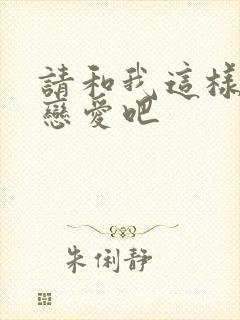 請和我這樣
戀愛吧
朱俐靜